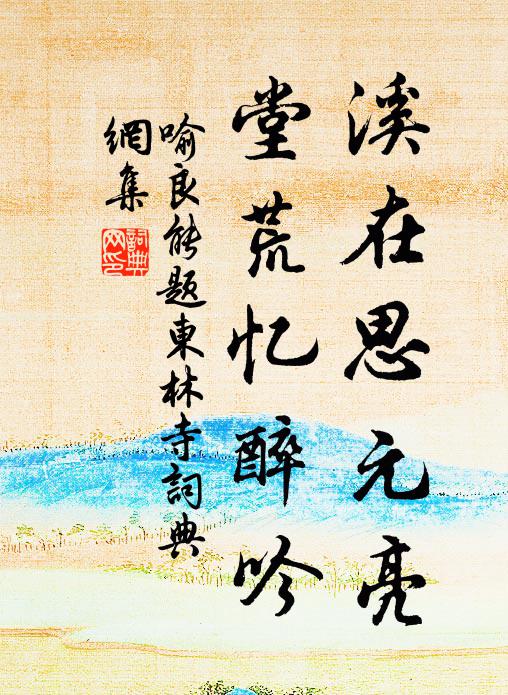 溪在思元亮
堂荒忆醉吟
喻良能题東林寺詞典
網集
詞典
网印